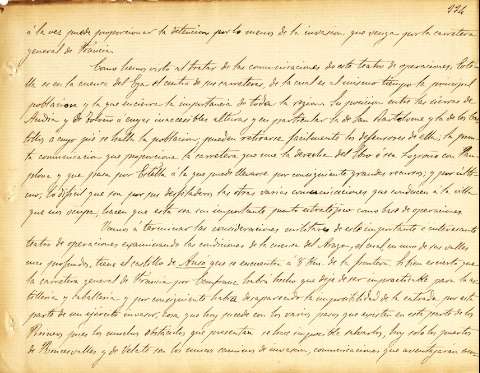 226
á la vez puede proporcionar la detencion por lo menos de la invasion que venga por la carretera
general de Francia.
Como hemos visto al tratar de las comunicaciones de este teatro de operaciones, Este-
lla es en la cuenca del Ega el centro de sus carreteras, de la cual es al mismo tiempo la principal
poblacion y la que encierra la importancia de toda la region. Su posicion entre las sierras de
Andia y de á cuyas inaccesibles alturas y en particular la de San y la de los Cas-
tillos á cuyo pié se halla la poblacion, pueden retirarse facilmente los defensores de ella; la pron-
ta comunicacion que proporciona la carretera que une la derecha del Ebro ó sea Logroño con Pam-
plona y que pasa por Estella á la que puede llevarse por consiguiente grandes recursos; y por ulti-
mo, lo dificil que son por sus desfiladeros las otras varias comunicaciones que conducen á la villa
que nos ocupa, hacen que esta sea un importante punto estratégico como base de operaciones.
Vamos á terminar las consideraciones militares de este importante é interesante
teatro de operaciones examinando las condiciones de la cuenca del Aragon, el cual en uno de sus valles
mas profundos, tiene el castillo de Anso que se encuentra á 8 Km. de la frontera. Si bien es cierto que
la carretera general de Francia por Canfranc habrá hecho que deje de ser impracticable para la ar-
tilleria y caballeria y por consiguiente habrá desaparecido la imposibilidad de la entrada por esta
parte de un ejercito invasor; cosa que hoy sucede con los varios pasos que existen en esta parte de los
Pirineos, pues los muchos obstáculos que presentan se hace imposible salvarlos, hoy solo los puertos
de Roncesvalles y de Velate son los unicos caminos de invasion, comunicaciones que